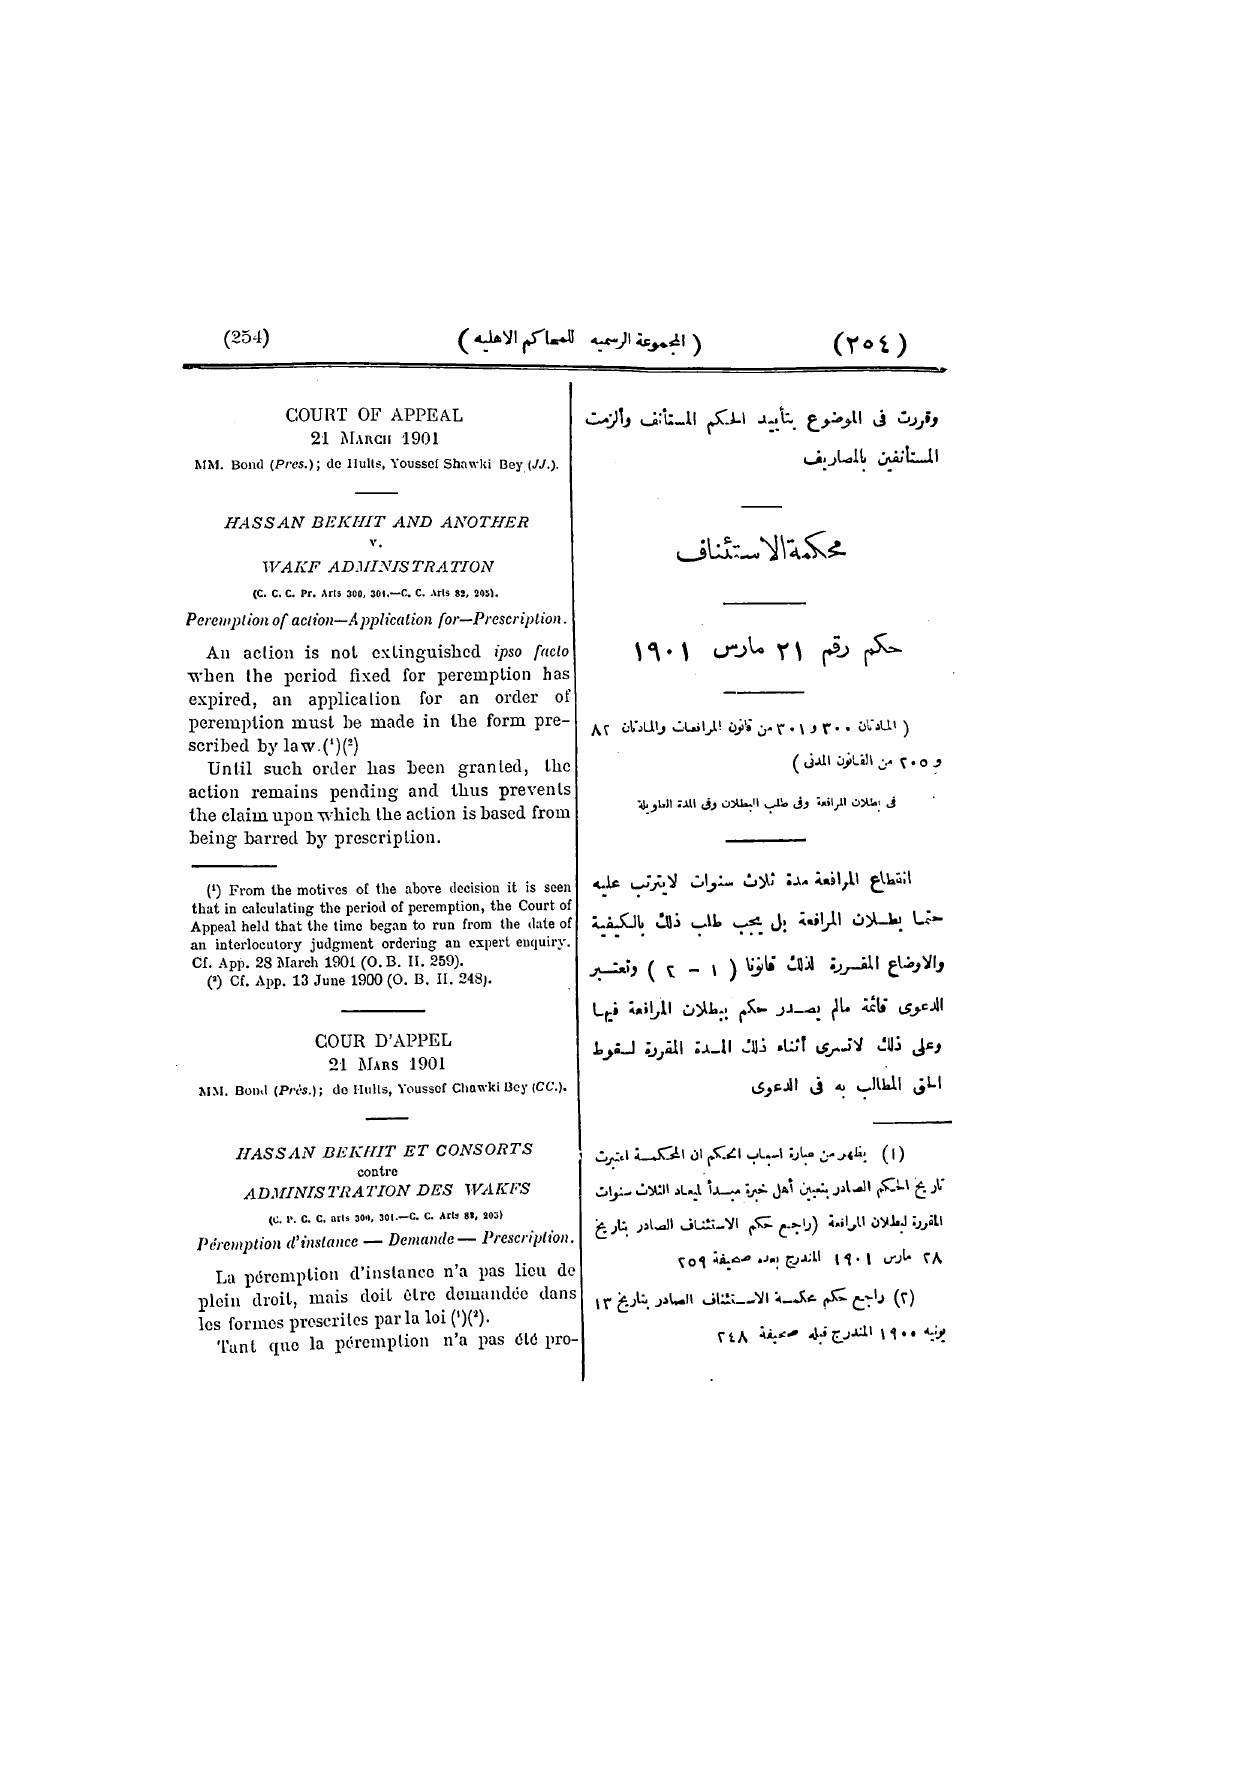 (254)
( المجموعة الرسميه للمحاكم الاهليه )
(٢٥٤)
COURT OF APPEAL
21 MARCH 1901
MM. Bond (Pres.); de Hults, Youssef Shawki Bey (JJ.).
HASSAN BEKHIT AND ANOTHER
v.
WAKF ADMINISTRATION
(C. C. C. Pr. Arts 300, 301.—C. C. Arts 82, 205).
Peremption of action—Application for—Prescription.
An action is not extinguished ipso facto
when the period fixed for peremption has
expired, an application for an order of
peremption must be made in the form pre-
scribed by law.(¹)(²)
Until such order has been granted, the
action remains pending and thus prevents
the claim upon which the action is based from
being barred by prescription.
(¹) From the motives of the above decision it is seen
that in calculating the period of peremption, the Court of
Appeal held that the time began to run from the date of
an interlocutory judgment ordering an expert enquiry.
Cf. App. 28 March 1901 (O. B. II. 259).
(²) Cf. App. 13 June 1900 (O. B. II. 248).
COUR D'APPEL
21 MARS 1901
MM. Bond (Prés.); de Hults, Youssef Chawki Bey (CC.).
HASSAN BEKHIT ET CONSORTS
contre
ADMINISTRATION DES WAKFS
(C. P. C. C. arts 300, 301.—C. C. Arts 82, 205)
Péremption d'instance — Demande — Prescription.
La péremption d'instance n'a pas lieu de
plein droit, mais doit être demandée dans
les formes prescrites par la loi (¹)(²).
Tant que la péremption n'a pas été pro-
وقررت فى الموضوع بتأييد الحكم المستأنف وألزمت
المستأنفين بالمصاريف
محكمة الاستئناف
حكم رقم ٢١ مارس ١٩٠١
( المادتان ٣٠٠ و ٣٠١ من قانون المرافعات والمادتان ٨٢
و ٢٠٥ من القانون المدنى )
فى بطلان المرافعة وفى طلب البطلان وفى المدة الطويلة
انقطاع المرافعة مدة ثلاث سنوات لايترتب عليه
حتما بطلان المرافعة بل يجب طلب ذلك بالكيفية
والاوضاع المقررة لذلك قانونا ( ١ - ٢ ) وتعتبر
الدعوى قائمة مالم يصدر حكم ببطلان المرافعة فيها
وعلى ذلك لاتسرى أثناء ذلك المدة المقررة لسقوط
الحق المطالب به فى الدعوى
(١) يظهر من عبارة اسباب الحكم ان المحكمة اعتبرت
تاريخ الحكم الصادر بتعيين أهل خبرة مبدأ لميعاد الثلاث سنوات
المقررة لبطلان المرافعة (راجع حكم الاستئناف الصادر بتاريخ
٢٨ مارس ١٩٠١ المندرج بعده صحيفة ٢٥٩
(٢) راجع حكم محكمة الاستئناف الصادر بتاريخ ١٣
يونيه ١٩٠٠ المندرج قبله صحيفة ٢٤٨